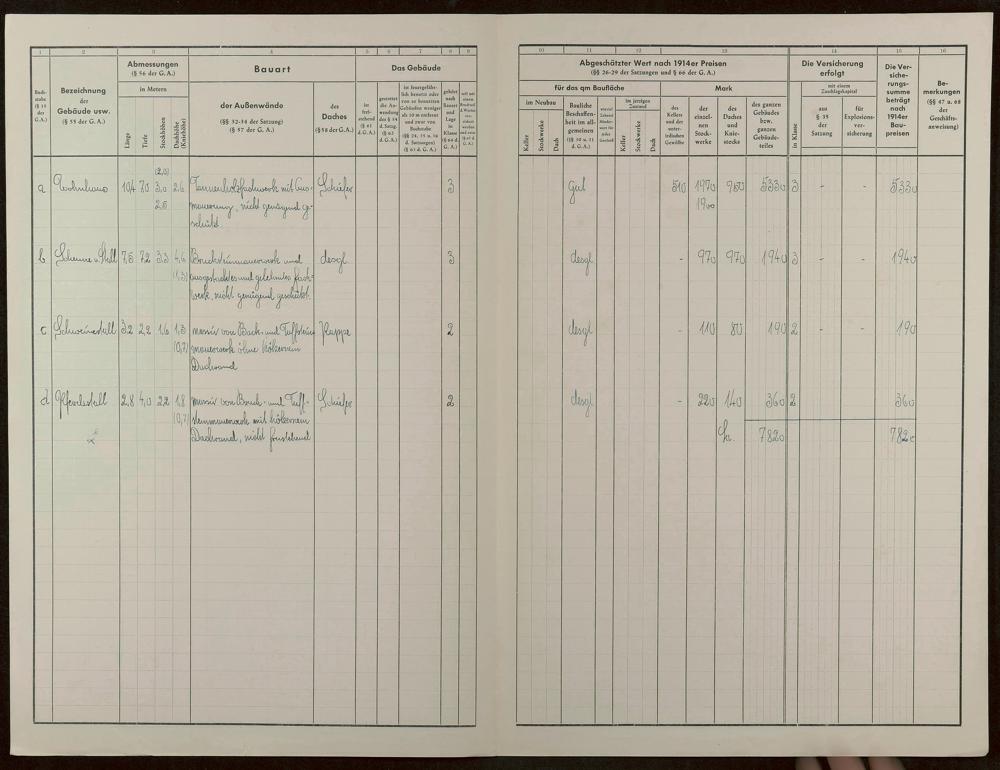 1 2 3 4 5 6 7 8 9
Buch-
stabe
(§ 55
der
G.A.)
Bezeichnung
der
Gebäude usw.
(§ 55 der G. A.)
Abmessungen
(§ 56 der G. A.)
in Metern
Länge Tiefe Stockhöhen Dachhöhe (Kniehöhe)
Bauart
der Außenwände
(§§ 32-34 der Satzung)
(§ 57 der G. A.)
des
Daches
(§ 58 der G.A.)
Das Gebäude
ist
frei-
stehend
(§ 61
d. G.A.)
gehört
nach
Bauart
und
Lage
in
Klasse
a Wohnhaus 10,4 7,0 (2,0) 3,0 2,5 2,6 Tannenholzfachwerk mit Aus-
mauerung, nicht genügend ge-
schützt. Schiefer 3
b Scheune u. Stall 7,5 7,2 3,3 4,6 (1,3) Bruchsteinmauerwerk und
ausgestacktes und gelehmtes Fach-
werk, nicht genügend geschützt. desgl. 3
c Schweinestall 3,2 2,2 1,6 1,3 (0,7) massiv von Back- und Tuffstein
mauerwerk ohne hölzernem
Dachrand Pappe 2
d Pferdestall 2,8 4,0 2,2 1,8 (0,7) massiv von Bruch- und Tuff-
steinmauerwerk mit hölzernem
Dachrand, nicht freistehend Schiefer 2
10 11 12 13 14 15 16
Abgeschätzter Wert nach 1914er Preisen
(§§ 26-29 der Satzungen und § 66 der G. A.)
für das qm Baufläche Mark
im Neubau
Keller Stockwerke Dach
Bauliche
Beschaffen-
heit im all-
gemeinen
(§§ 30 u. 31
d. G.A.)
im jetzigen
Zustand
Keller Stockwerke Dach
des
Kellers
und der
unter-
irdischen
Gewölbe
der
einzel-
nen
Stock-
werke
des
Daches
und
Knie-
stocks
des ganzen
Gebäudes
bzw.
ganzen
Gebäude-
teiles
Die Versicherung
erfolgt
in Klasse
mit einem
Zuschlagskapital
aus
§ 35
der
Satzung
für
Explosions-
ver-
sicherung
Die Ver-
siche-
rungs-
summe
beträgt
nach
1914er
Bau-
preisen
Be-
merkungen
(§§ 47 u. 68
der
Geschäfts-
anweisung)
gut 510 1970 1900 950 5330 3 - - 5330
desgl. - 970 970 1940 3 - - 1940
desgl. - 110 80 190 2 - - 190
desgl. - 220 140 360 2 360
7820 7820